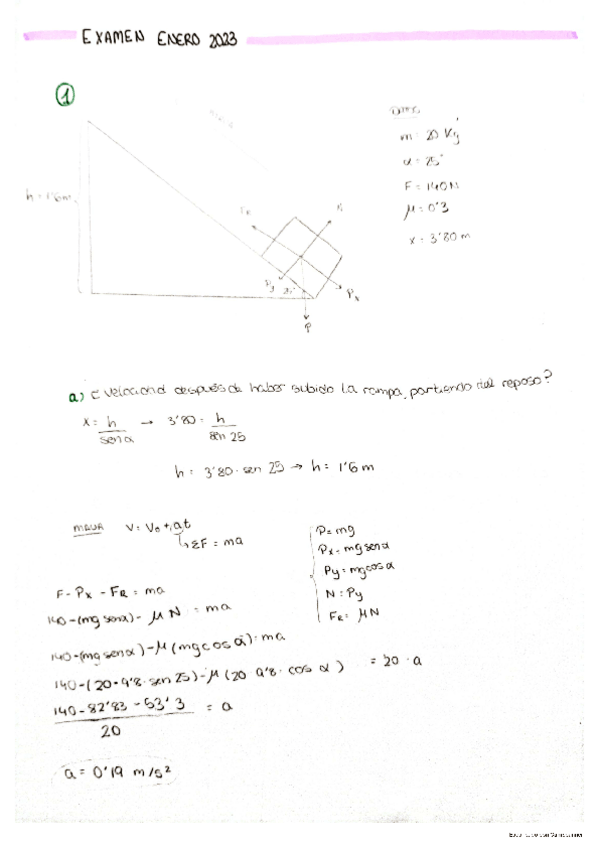 EXAMEN ENERO 2023
1
Datos
m = 20 Kg
α = 25°
F = 140N
μ = 0'3
x = 3'80 m
h = 1'6m
FR
N
Py
25°
Px
P
a) ¿ velocidad después de haber subido la rampa, partiendo del reposo?
x = h / senα → 3'80 = h / sen 25
h = 3'80 · sen 25 → h = 1'6 m
MRUA V = V₀ + at
↳ ΣF = ma
P = mg
Px = mg senα
Py = mg cos α
N = Py
FR = μN
F - Px - FR = ma
140 - (mg senα) - μ N = ma
140 - (mg senα) - μ (mg cos α) = ma
140 - (20 · 9'8 · sen 25) - μ (20 · 9'8 · cos α) = 20 · a
140 - 82'83 - 53'3 / 20 = a
a = 0'19 m/s²